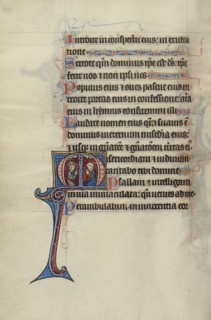 Introite in conspectu eius: in exulta
tione
Scitote qm dominus ipse est ds: ipse
fecit nos & non ipsi nos
Populus eius & oues pascue eius in
troite portas eius in confessione: atria
eius in hymnis confitemini illi
Laudate nomen eius qm suauis e
dominus in eternum misericordia eius:
& usq; in
isericordiam & iudicium
cantabo tibi domine
Psallam & intelligam
in uia inmaculata: qn uenies ad me
Perambulabam in innocentia cor